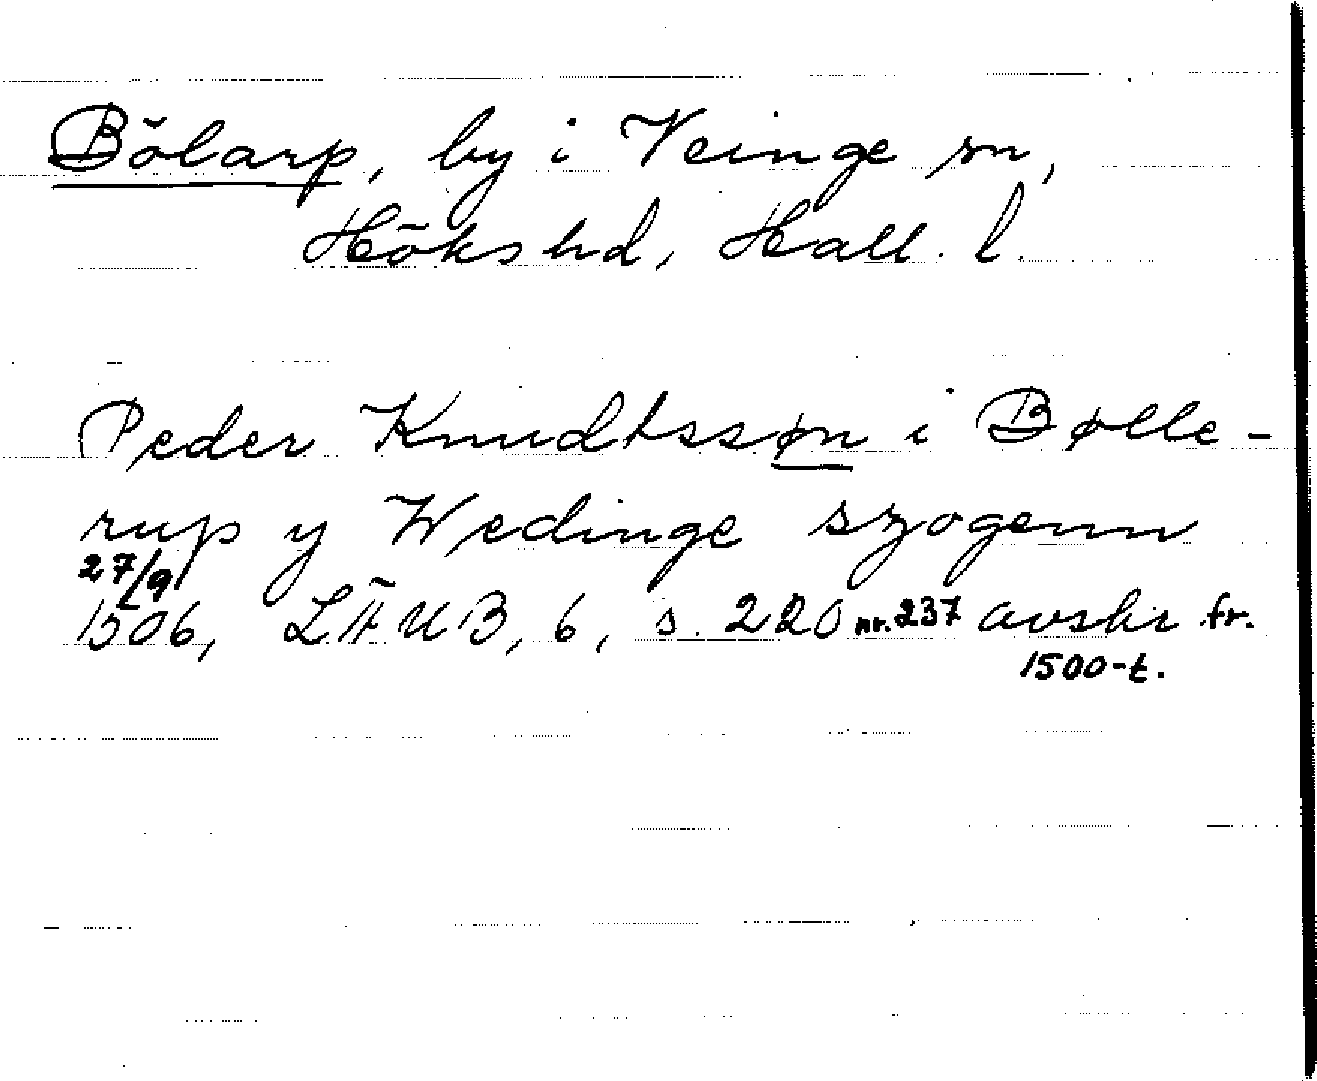 Bölarp, by i Veinge sn,
Höks hd, Hall. l.
Peder Knudtssøn i Bølle-
rup y Wedinge szogenn
27/9
1506, LÄUB, 6, s. 220 nr. 237 avskr fr.
1500-t.